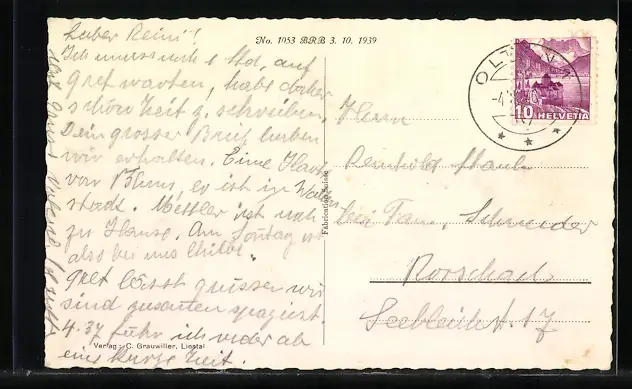 No. 1053 BRB 3. 10. 1939
Lieber Reini!
Ich muss noch 1 Std. auf
Gret warten, habe daher
schön Zeit z. schreiben.
Dein grosser Brief haben
wir erhalten. Eine Karte
von Hans, er ist in
stadt. Mettler ist noch
zu Hause. Am Sonntag ist
also bei uns Chilbi.
Gret lässt grüssen wir
sind zusammen spaziert.
4.37 Fuhr ich wieder ab
eine kurze Zeit.
Verlag: C. Grauwiller, Liestal
Fabrication Suisse
OLTEN 1
10 HELVETIA
Herrn
Reinhold
bei Fam. Schneider
Rorschach
17